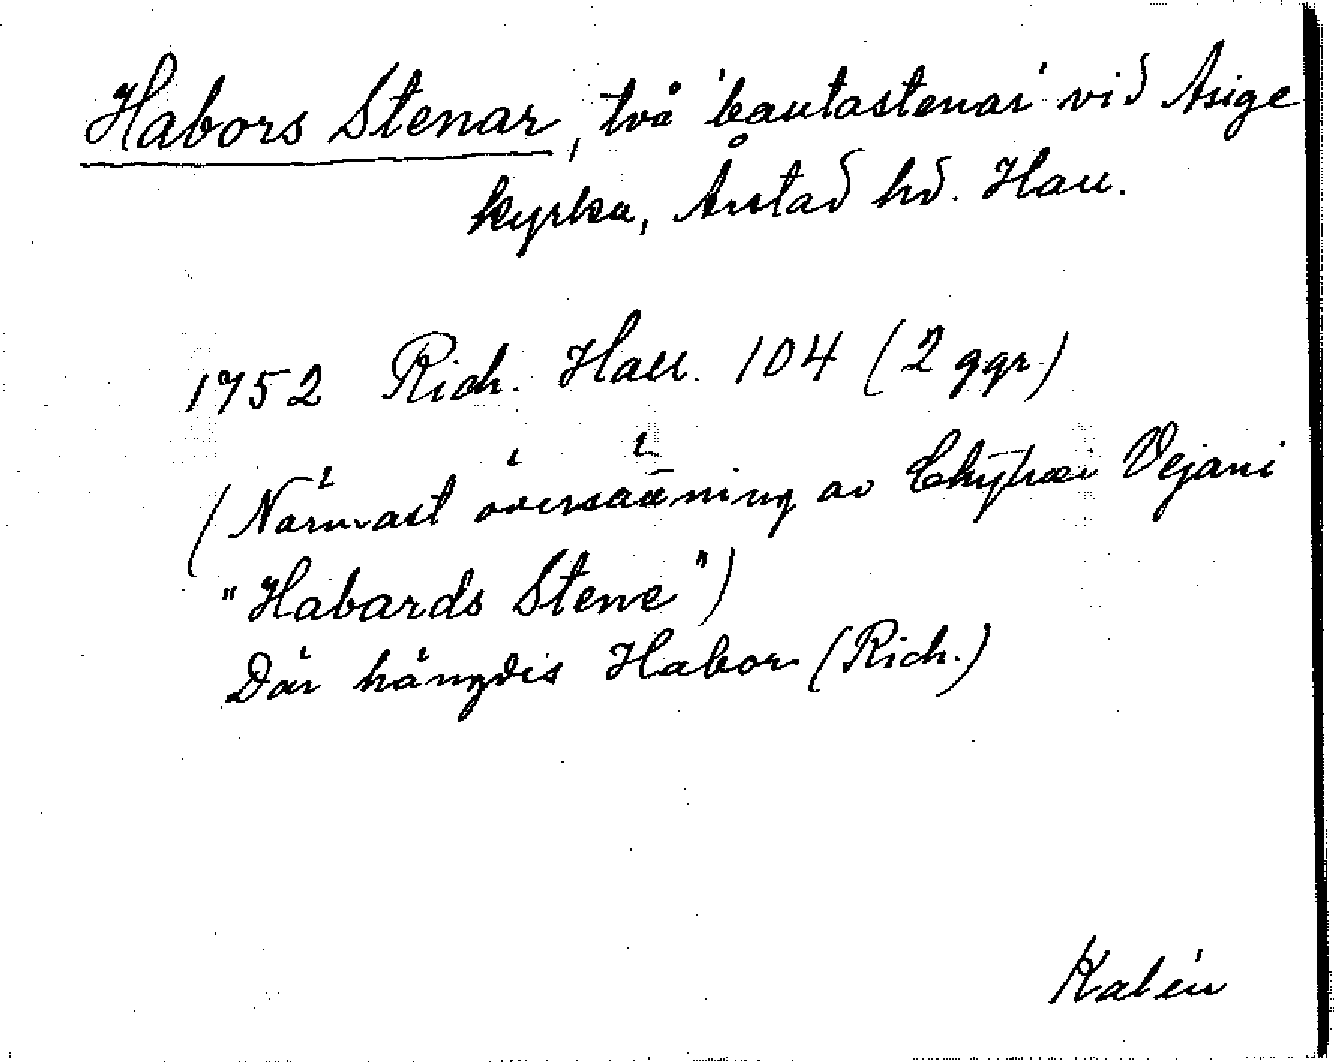 Habors Stenar, två 'bautastenar' vid Asige
kyrka, Årstad hd. Hall.
1752 Rich. Hall. 104 (2 ggr)
(Närmast översättning av Chytræi Vejani
"Habards Stene")
Där hängdes Habor (Rich.)
Kalén